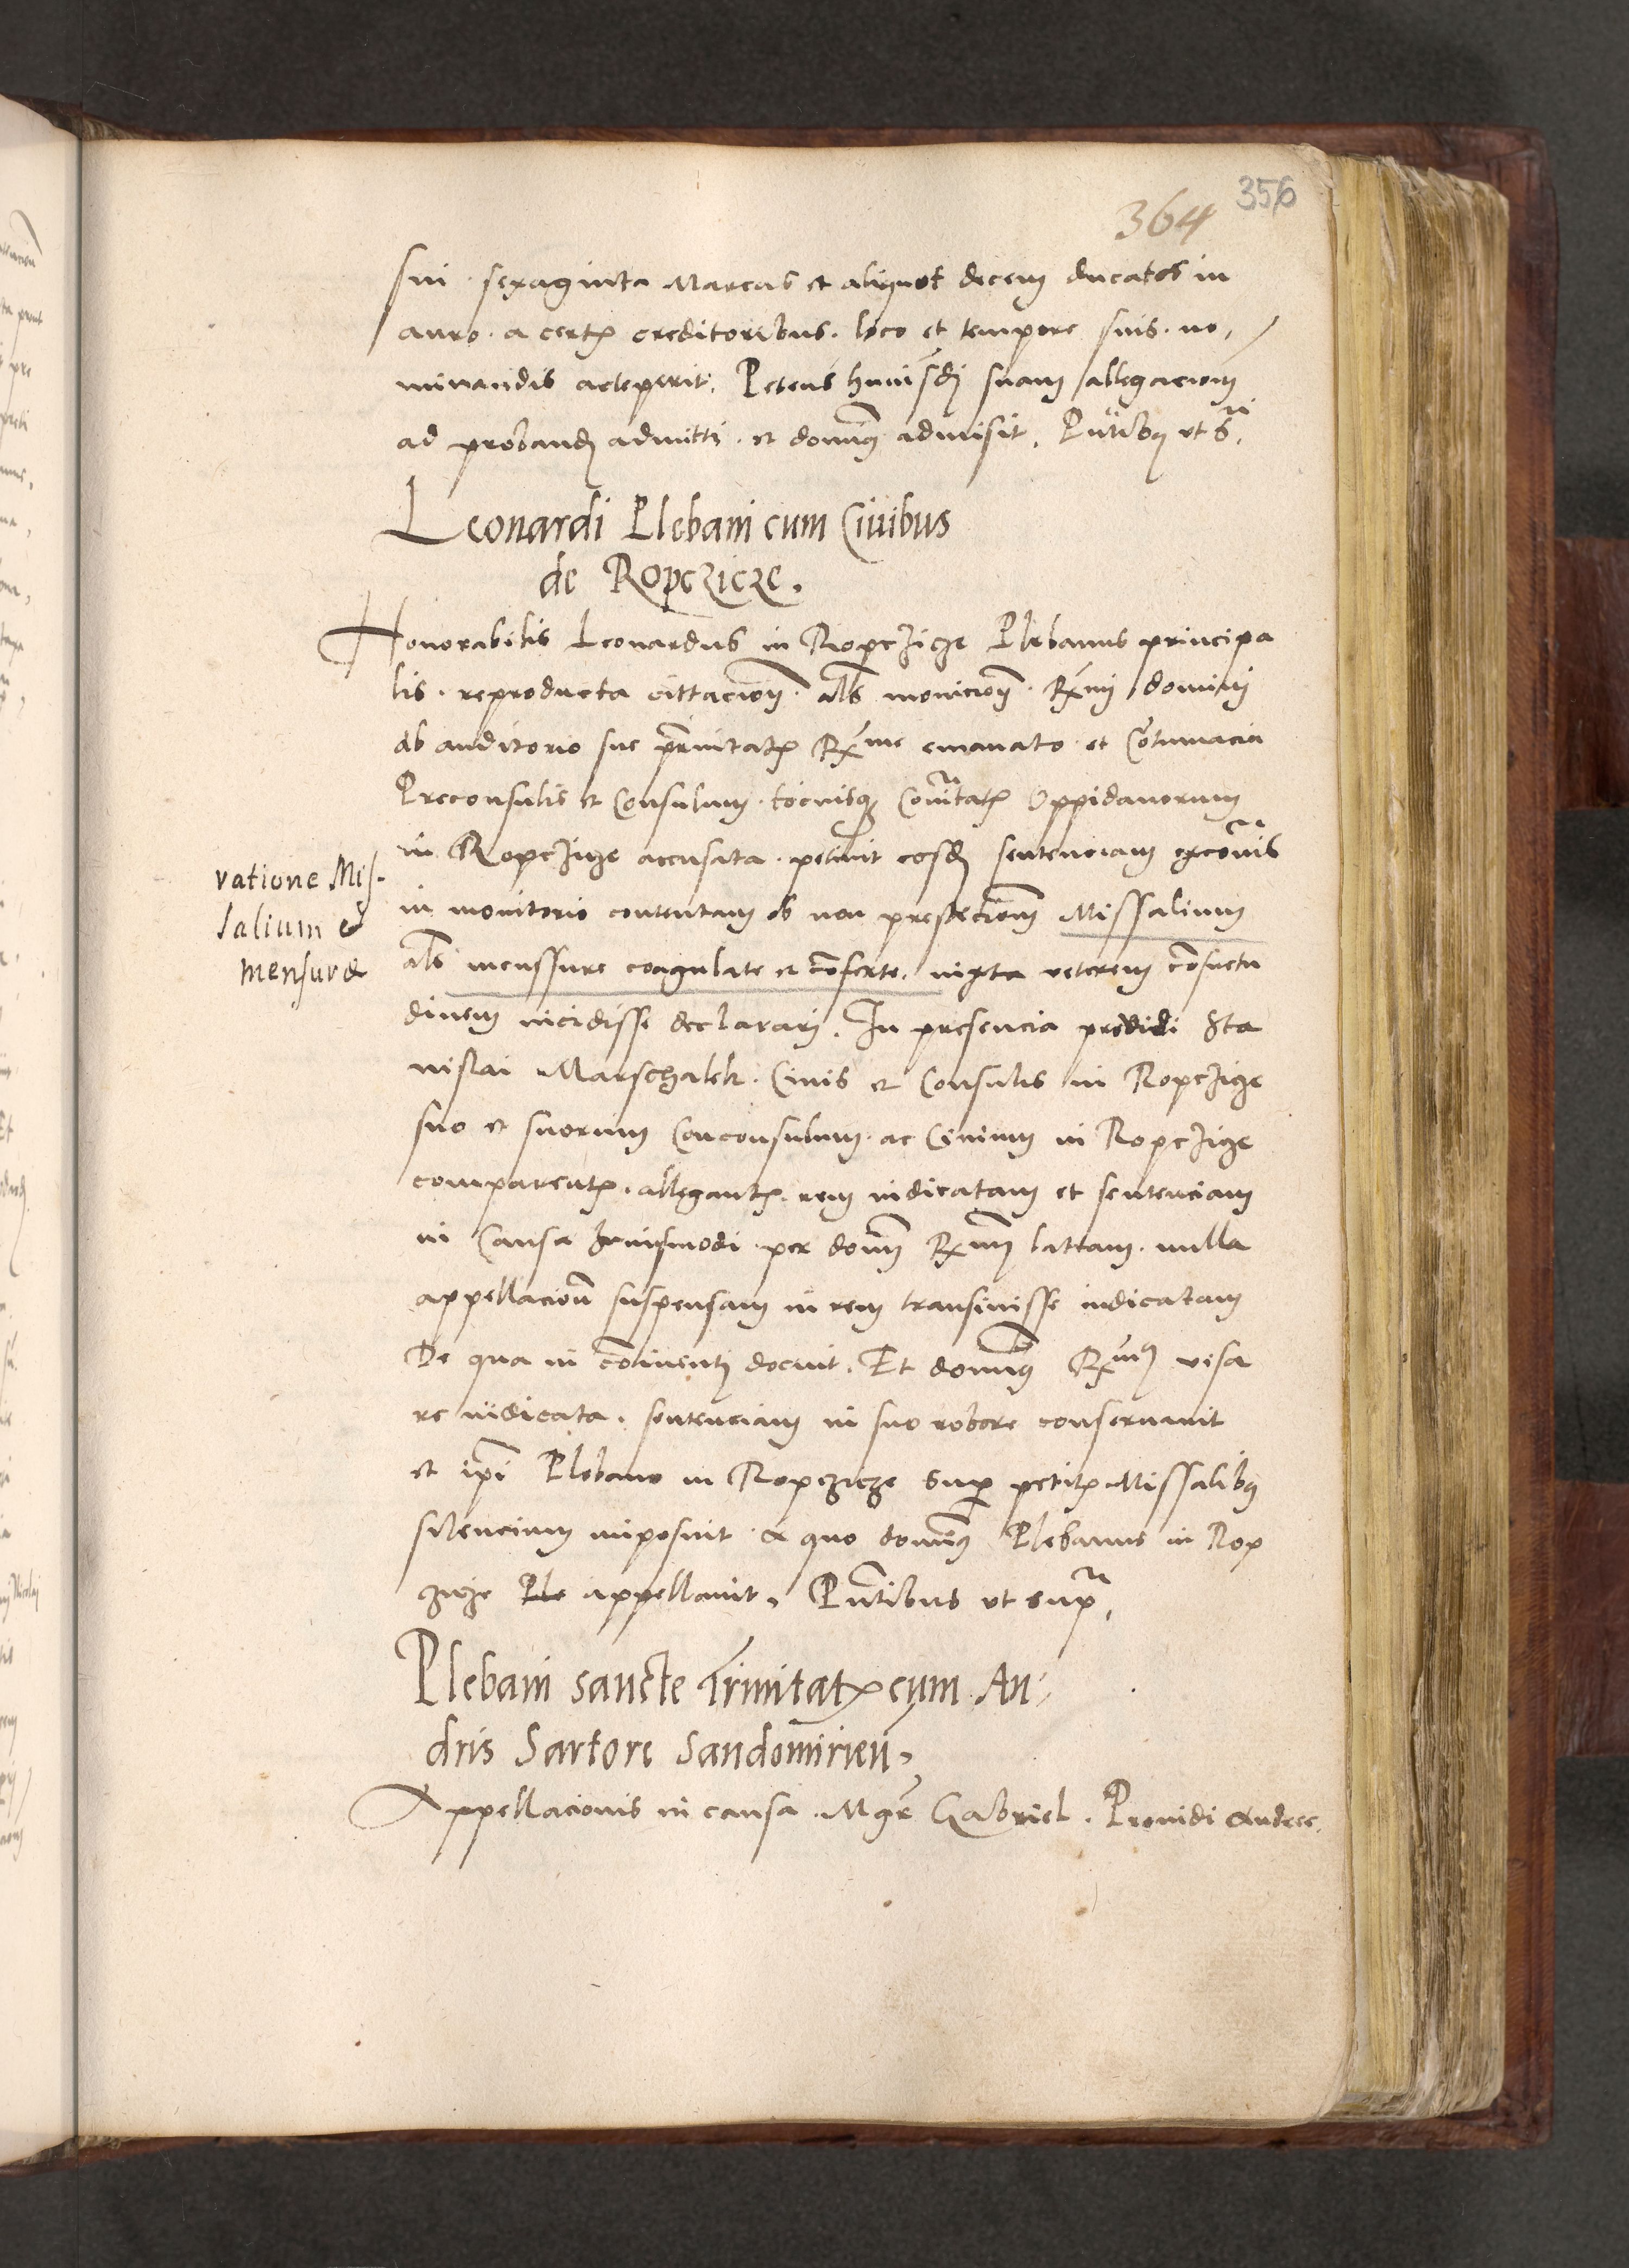 356
364
sui . sexaginta Marcas et aliquot decem ducatos in
auro . a certis creditoribus . loco et tempore suis . no-
minandis acceperit. Petens huiusdi suam allegacionem
ad proband admitti . et dominus admisit. Pntibus ut s.
Leonardi Plebani cum Civibus
de Ropczicze.
Honorabilis Leonardus in Ropczicze Plebanus principa
lis . reproducta cittacione . als monicione . Rxmi domini
ab auditorio sue pternitatis Rxme emanato . et Cotumacia
Preconsulis et Consulum . tociusque Comitatis Oppidanorum
in Ropczicze accusata . petiuit eosd sentenciam excois
in monitorio contentam ob non prestacionem Missalium
ratione Mis-
salium et
mensuræ
als menssure coagulate et conferte . iuxta veterem consuetu
dinem incidisse declarari. In presencia predicti Sta
nislai Marschalek . Civis et Consulis in Ropczicze
suo et suorum Conconsulum . ac Civium in Ropczicze
comparentis . allegantis . rem iudicatam et sentenciam
in Causa huiusmodi . per domm Rxmum lattam . nulla
appellacione suspensam in rem transiuisse iudicatam
De qua in continenti docuit. Et dominus Rxmus visa
re iudicata . sentenciam in suo robore conseruauit
et ipi Plebano in Ropczicze sup petitis Missalibus
silencium imposuit . a quo dominus Plebanus in Rop
czicze Ple appellauit. Pntibus ut supra.
Plebani sancte Trinitatis cum An-
dris Sartore Sandomirien.
Appellacionis in causa . Mgri Gabriel . Prouidi Andree.